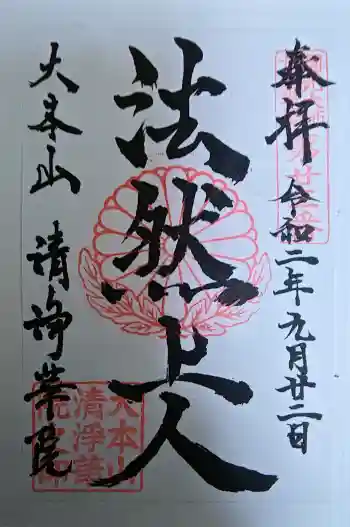 奉拝 令和二年九月廿二日
法然上人
大本山 清浄華院
大本山
清浄華
院之印